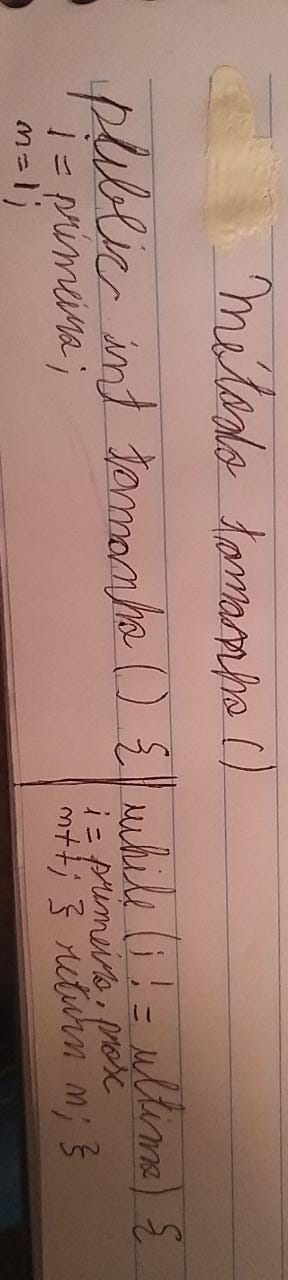 Método tamanho()
public int tamanho() {
i = primeiro;
n = 1;
while (i != ultimo) {
i = primeiro.prox
n++; } return n; }